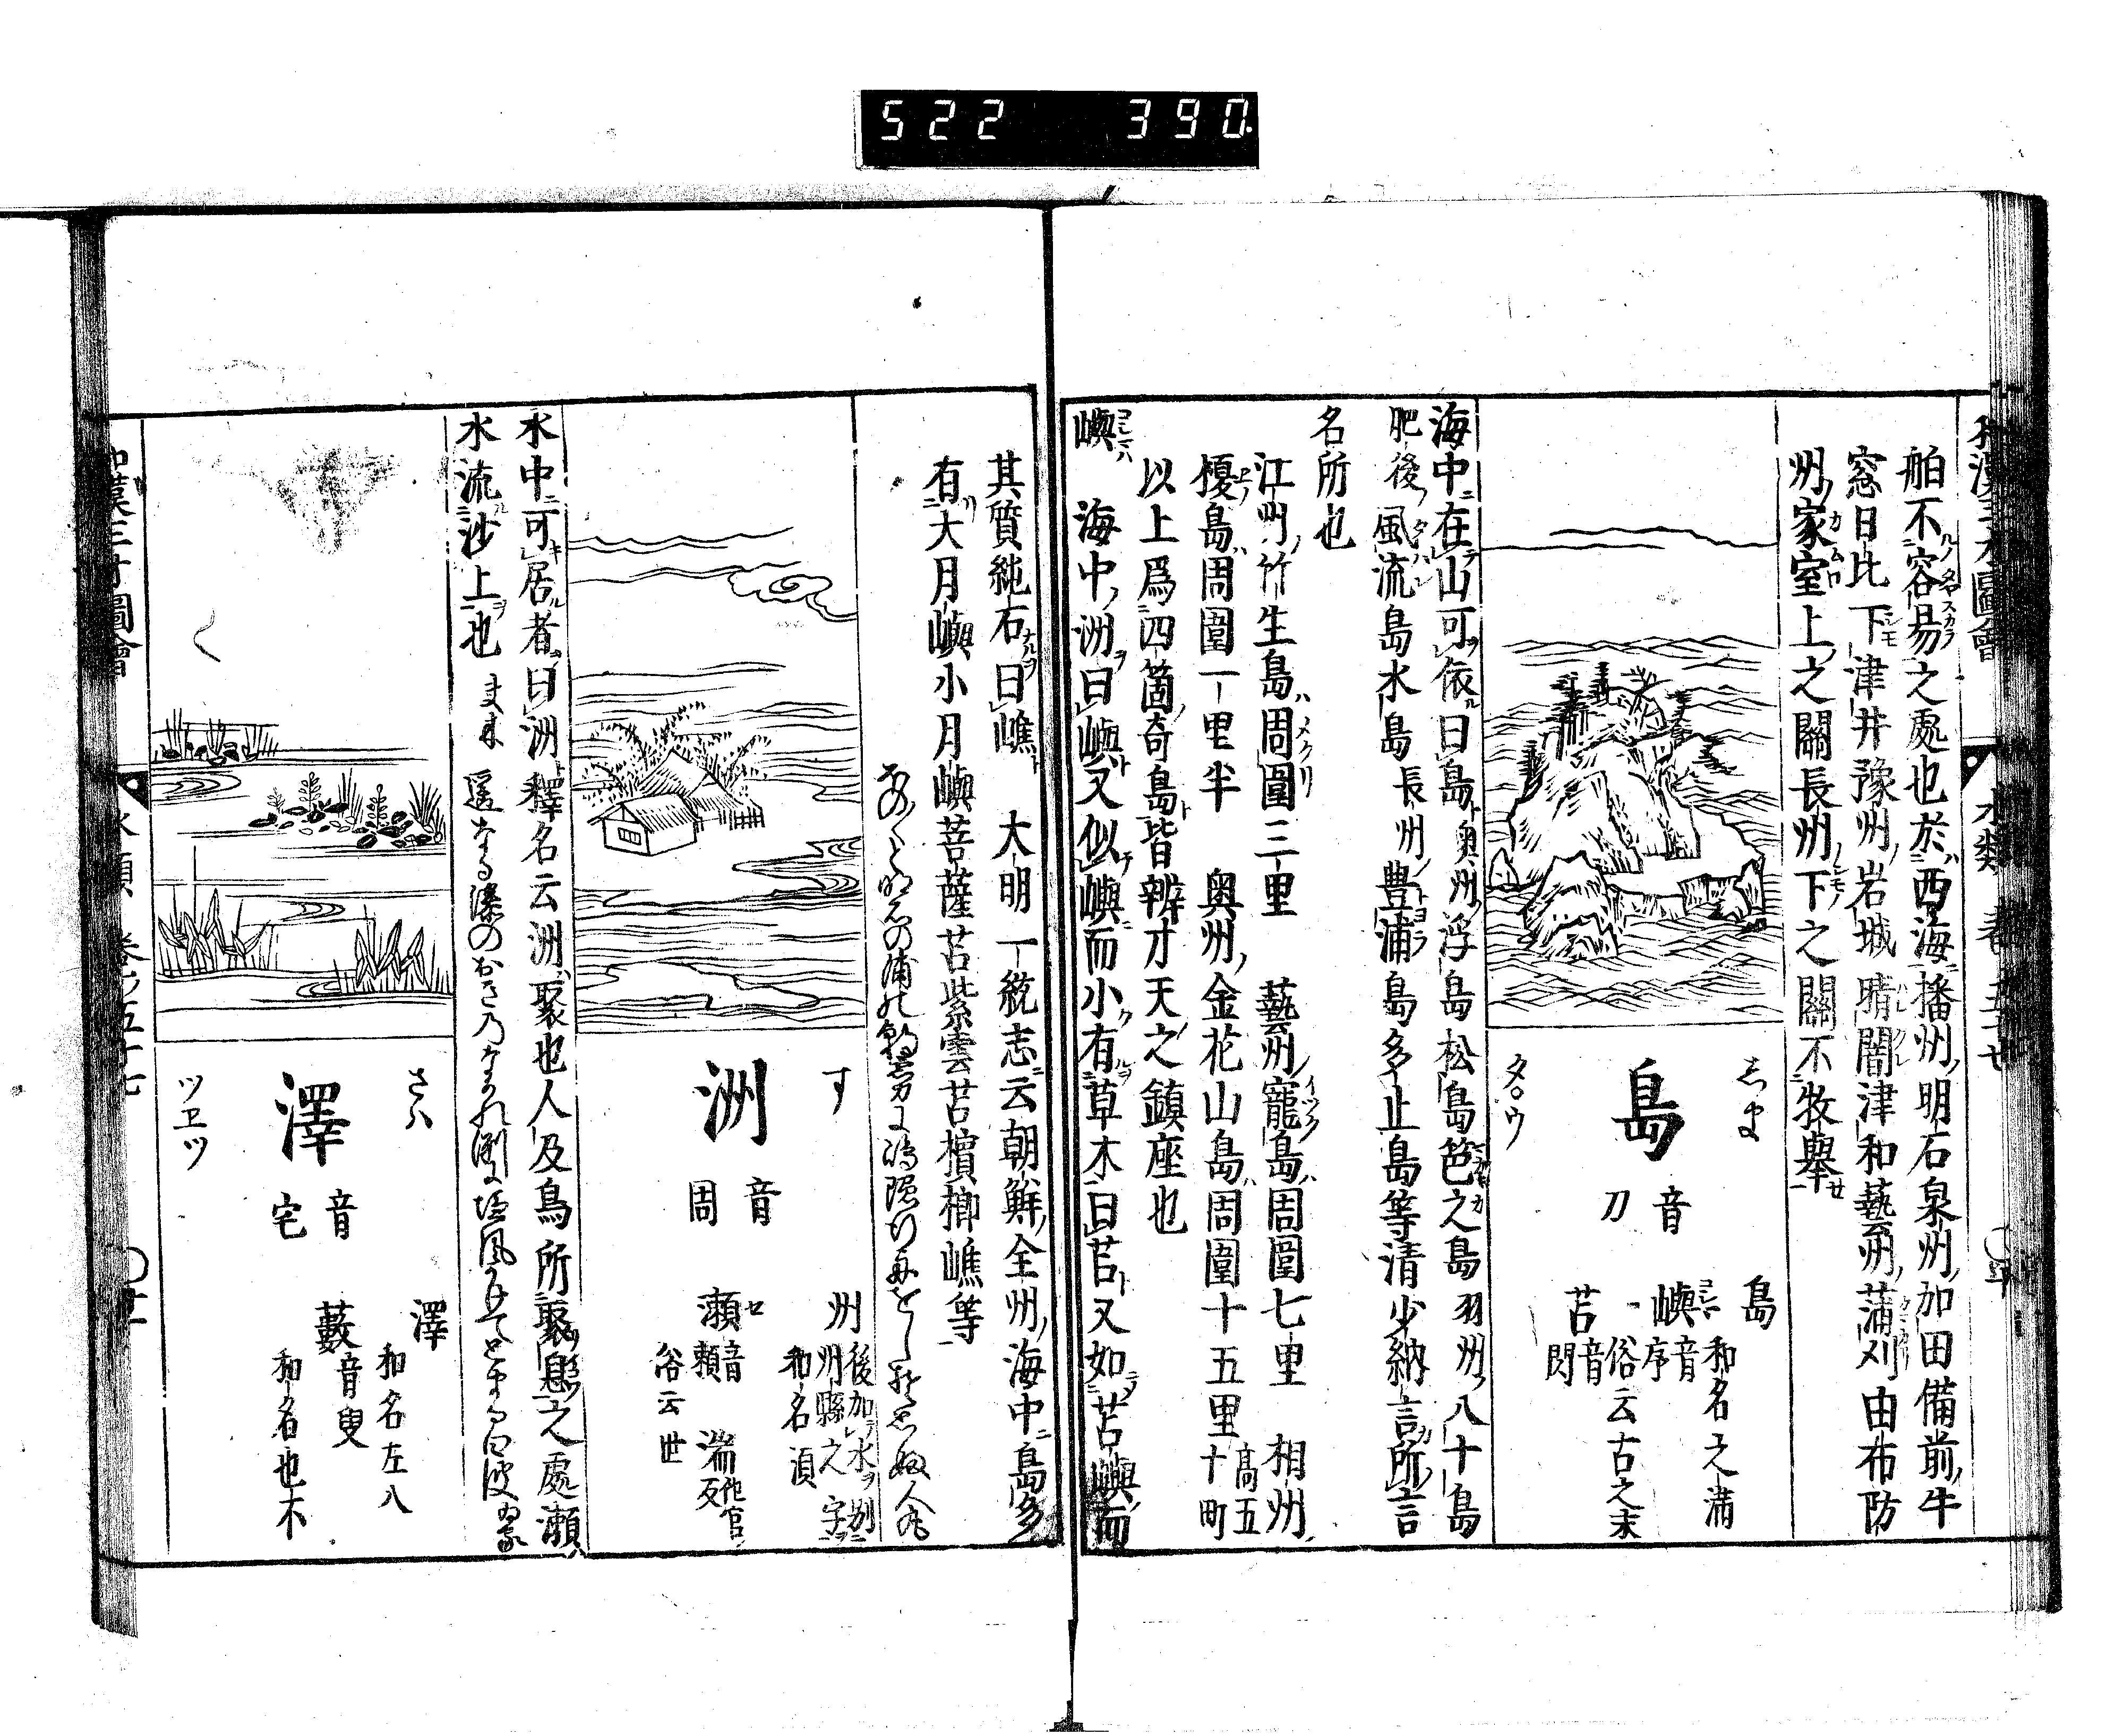 522 390.
和漢三才圖會 水類 卷五十七
舶不容易之處也於西海播州明石泉州加田備前牛
窓日比下津井豫州岩城晴闇津和藝州蒲刈由布防
州家室上之關長州下之關不牧擧
しま
島
タ〇ウ
音刀
島
和名之滿
嶼
音序
俗云古之末
苫
音閃
海中在山可依曰島奥州浮島松島笆之島羽州八十島
肥後風流島水島長州豊浦島多止島等清少納言所言
名所也
江州竹生島周圍三里 藝州寵島周圍七里 相州
榎島周圍一里半 奥州金花山島周圍十五里高五十町
以上爲四箇奇島皆辨才天之鎮座也
嶼 海中洲曰嶼又似嶼而小有草木曰苫又如苫嶼而
其質純石曰嶕 大明一統志云朝鮮全州海中島多
有大月嶼小月嶼菩薩苫紫雲苫檳榔嶕等
ほの〱と明石の浦の朝霧に嶋隠行舟をしそ思ふ 人丸
す
洲
音周
州
後加水別
州縣之字
和名須
瀬
音頼
湍
他官反
俗云世
水中可居者曰洲釋名云洲聚也人及鳥所聚息之處瀬
水流沙上也
さは
澤
ツヱツ
音宅
澤
和名左八
藪
音叟
和名也不
和漢三才圖會 水類 卷之五十七